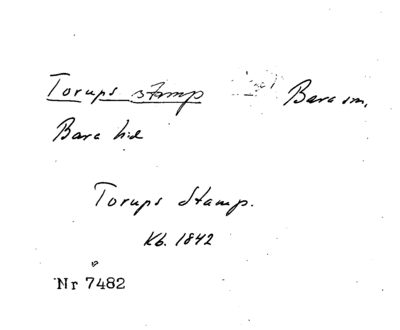 Torups stamp Bara sn.
Bara hd
Torups Stamp.
Kb. 1842
Nr 7482